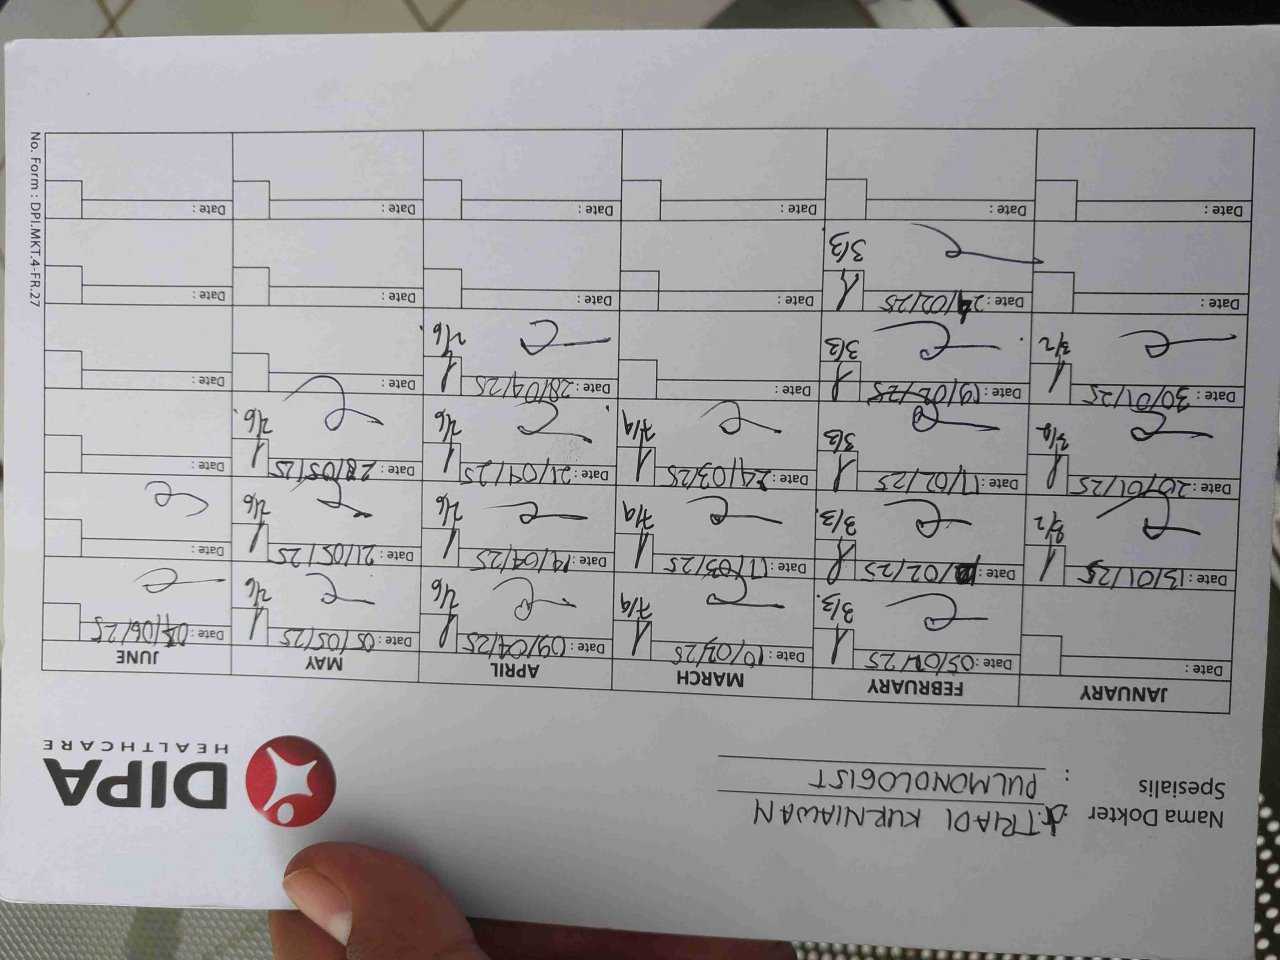 Nama Dokter : dr. TRIADI KURNIAWAN
Spesialis : PULMONOLOGIST
DIPA
HEALTHCARE
JANUARY FEBRUARY MARCH APRIL MAY JUNE
Date : Date : 05/02/25 Date : 10/03/25 Date : 09/04/25 Date : 05/05/25 Date : 02/06/25
3/3. 7/9 2/6 2/6
Date : 13/01/25 Date : /02/25 Date : 17/03/25 Date : 14/04/25 Date : 21/05/25 Date :
3/2 3/3. 7/9 2/6 2/6
Date : 20/01/25 Date : 17/02/25 Date : 24/03/25 Date : 21/04/25 Date : 28/05/25 Date :
3/2 3/3 7/9 2/6 2/6
Date : 30/01/25 Date : 19/02/25 Date : Date : 28/04/25 Date : Date :
3/2 3/3 2/6
Date : Date : 24/02/25 Date : Date : Date : Date :
3/3
Date : Date : Date : Date : Date : Date :
No. Form : DPI.MKT.4-FR.27